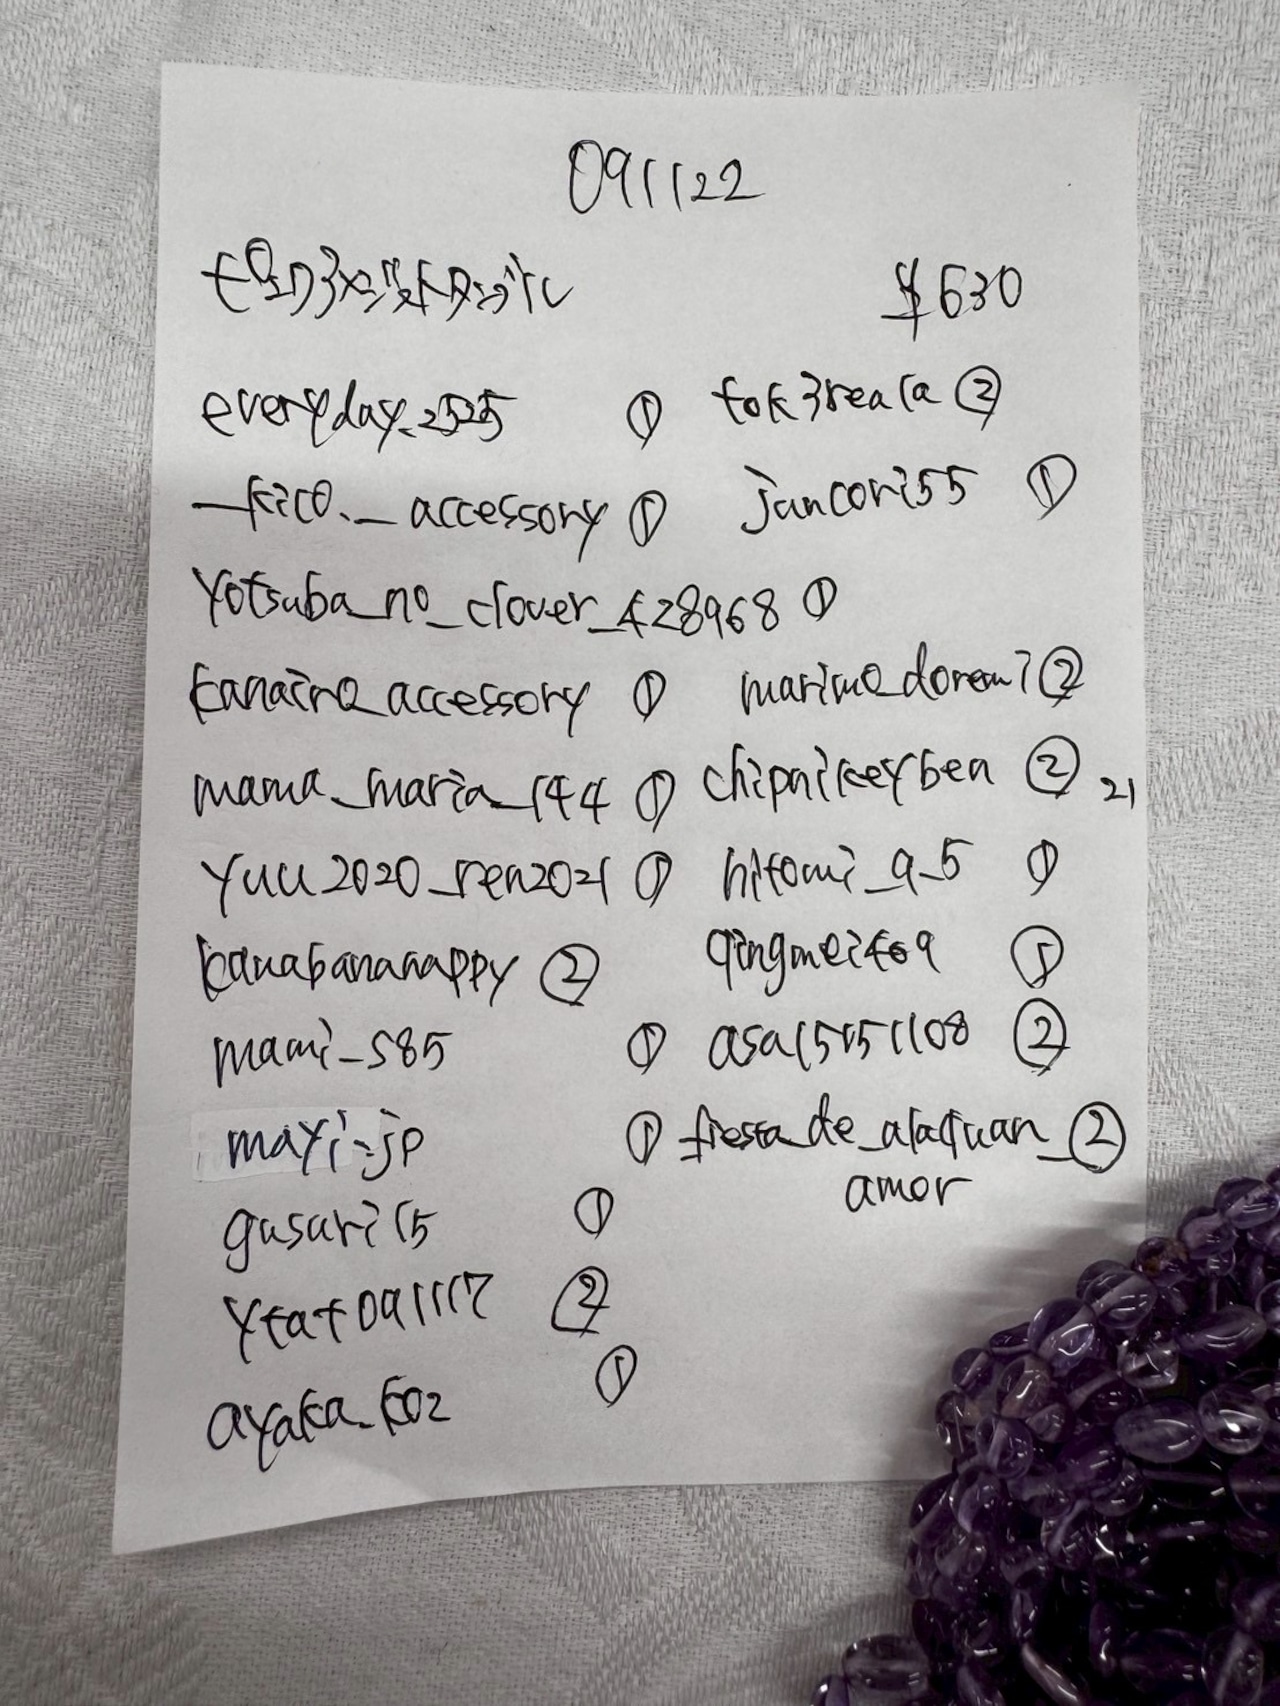 091122
¥630
everyday.2525 ① tok3reala ②
_kico._accessory ① jancori55 ①
yotsuba_no_clover_428968 ①
kanairo_accessory ① marimo_doremi ②
mama_maria_144 ① chipnikeyben ② 21
yuu2020_ren2021 ① hitomi_9_5 ①
kanabananappy ② qingmei469
mami_s85 ① asa15151108 ②
mayi.jp ① fiesta_de_alaquan_ ②
amor
gusuri15 ①
ytat091117 ②
ayaka_k02 ①